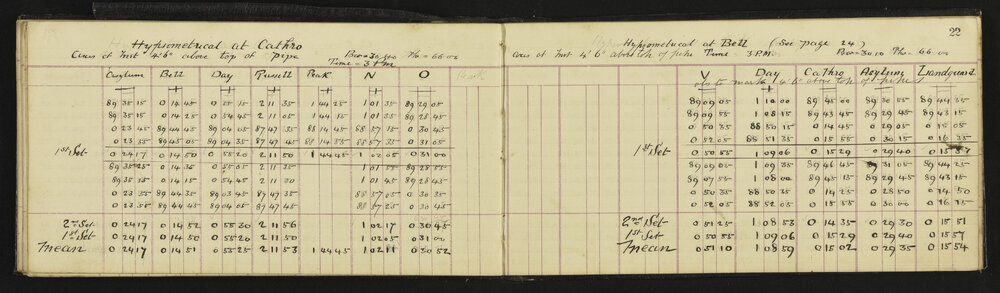 Hypsometrical at Cathro
Cens of Inst 4'.6" above top of pipe
Bar = 30. Ther = 66.00
Time = 3 P.M
Asylum Bell Day Russell Peak N O
89 35 15 0 14 45 0 55 15 2 11 35 1 44 25 1 01 35 89 29 05
89 35 15 0 14 25 0 54 45 2 11 05 1 44 15 1 01 35 89 28 45
0 23 45 89 44 45 89 04 35 87 47 35 88 14 45 88 57 15 0 30 45
0 23 55 89 45 05 89 04 35 87 47 55 88 14 55 88 57 35 0 31 05
1st Set 0 24 17 0 14 50 0 55 20 2 11 50 1 44 45 1 02 05 0 31 00
89 35 25 0 14 35 0 55 05 2 11 35 1 01 55 89 28 55
89 35 15 0 14 15 0 54 45 2 11 30 1 01 45 89 28 45
0 23 55 89 44 35 89 03 45 87 47 35 88 57 05 0 30 35
0 23 55 89 44 45 89 04 45 87 47 45 88 57 25 0 30 55
2nd Set 0 24 17 0 14 52 0 55 30 2 11 56 1 02 17 0 30 45
1st Set 0 24 17 0 14 50 0 55 20 2 11 50 1 02 05 0 31 00
Mean 0 24 17 0 14 51 0 55 25 2 11 53 1 44 45 1 02 11 0 30 52
22
Hypsometrical at Bell (See page 24)
Cens of Inst 4'.6" above top of pipe Time = 3 P.M. Bar = 30.10 Ther = 66.00
V Day Cathro Asylum Landguard
obs to mark 4'.6" above top of pipe
89 09 05 1 10 00 89 45 00 89 30 55 89 44 35
89 09 55 1 08 15 89 43 45 89 29 45 89 43 15
0 50 35 88 50 15 0 14 45 0 29 05 0 15 05
0 52 05 88 51 35 0 15 55 0 30 15 0 16 35
1st Set 0 50 55 1 09 06 0 15 29 0 29 40 0 15 57
89 09 05 1 09 35 89 46 45 89 31 05 89 44 25
89 07 55 1 08 00 89 45 15 89 29 45 89 43 15
0 50 35 88 50 35 0 14 25 0 28 50 0 14 50
0 52 05 88 52 05 0 15 55 0 30 00 0 16 15
2nd Set 0 51 25 1 08 53 0 14 35 0 29 30 0 15 51
1st Set 0 50 55 1 09 06 0 15 29 0 29 40 0 15 57
Mean 0 51 10 1 08 59 0 15 02 0 29 35 0 15 54